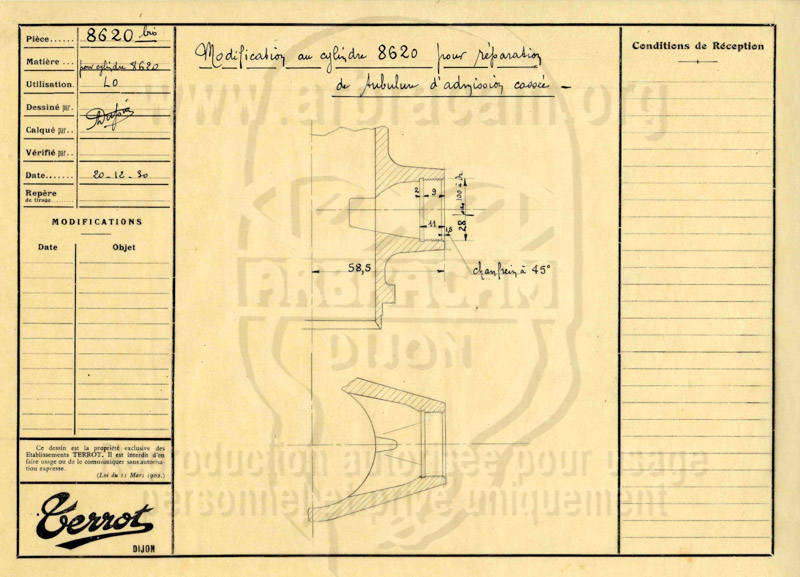 Pièce...... 8620 bis
Matière... pour cylindre 8620
Utilisation. LO
Dessiné par.
Calqué par..
Vérifié par..
Date....... 20-12-30
Repère
de tirage.......
MODIFICATIONS
Date Objet
Ce dessin est la propriété exclusive des
Etablissements TERROT. Il est interdit d'en
faire usage ou de le communiquer sans autorisa-
tion expresse.
(Loi du 11 Mars 1902.)
Terrot
DIJON
Modification au cylindre 8620 pour réparation
de tubulure d'admission cassée
2 9
11
1,5
28 pas 100
58,5
chanfrein à 45°
Conditions de Réception
www.arbracam.org
ARBRACAM
DIJON
reproduction autorisée pour usage
personnel et privé uniquement